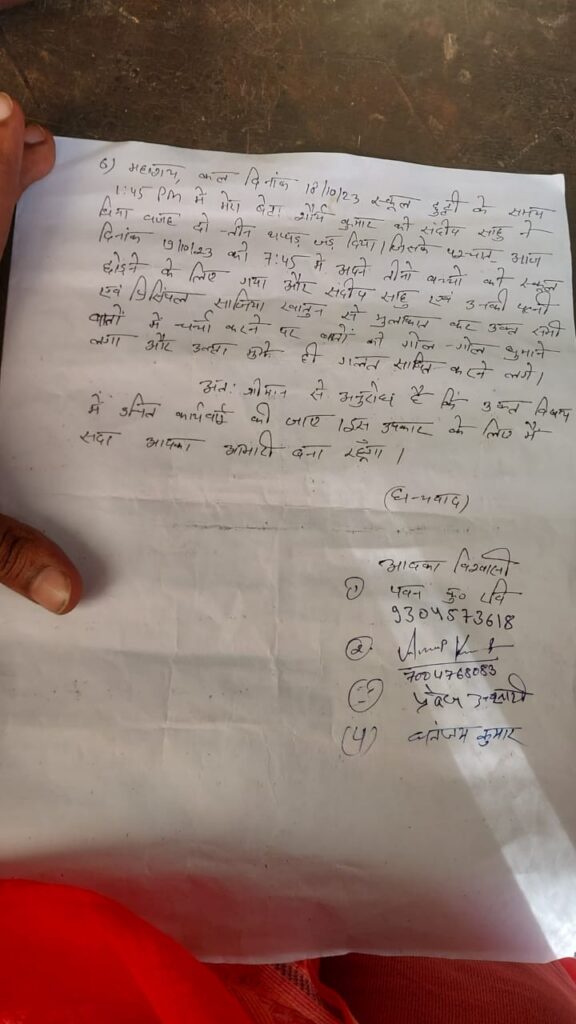 6) महाशय, कल दिनांक 18/10/23 स्कूल छुट्टी के समय
1:45 PM में मेरा बेटा शौर्य कुमार को संदीप साहु ने
बिना वजह दो-तीन थप्पड़ जड़ दिया। जिसके पश्चात आज
दिनांक 19/10/23 को 7:45 में अपने तीनो बच्चो को स्कूल
छोड़ने के लिए गया और संदीप साहु एवं उनकी पत्नी
एवं प्रिंसिपल साजिया खातुन से मुलाकात कर उक्त सभी
बातों में चर्चा करने पर बातों को गोल-गोल घुमाने
लगा और उल्टा मुझे ही गलत साबित करने लगे।
अतः श्रीमान से अनुरोध है कि उक्त विषय
में उचित कार्यवाई की जाए। इस उपकार के लिए मैं
सदा आपका आभारी बना रहूँगा।
(धन्यवाद)
आपका विश्वासी
① पवन कु० रवि
9304573618
②
7004768083
③ अन्सारी
(4) धनंजय कुमार